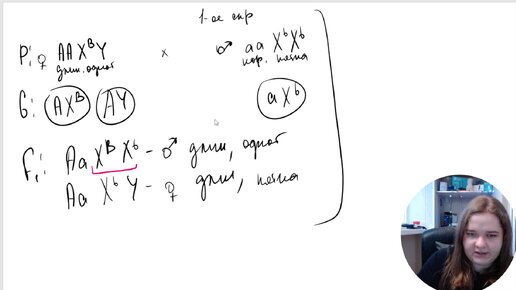 1-ое скр
P: ♀ AA XᴮY × ♂ aa XᵇXᵇ
длин. однот кор. пятна
G: AXᴮ AY aXᵇ
F₁: Aa Xᴮ Xᵇ – ♂ длин, однот
Aa Xᵇ Y – ♀ длин, пятна